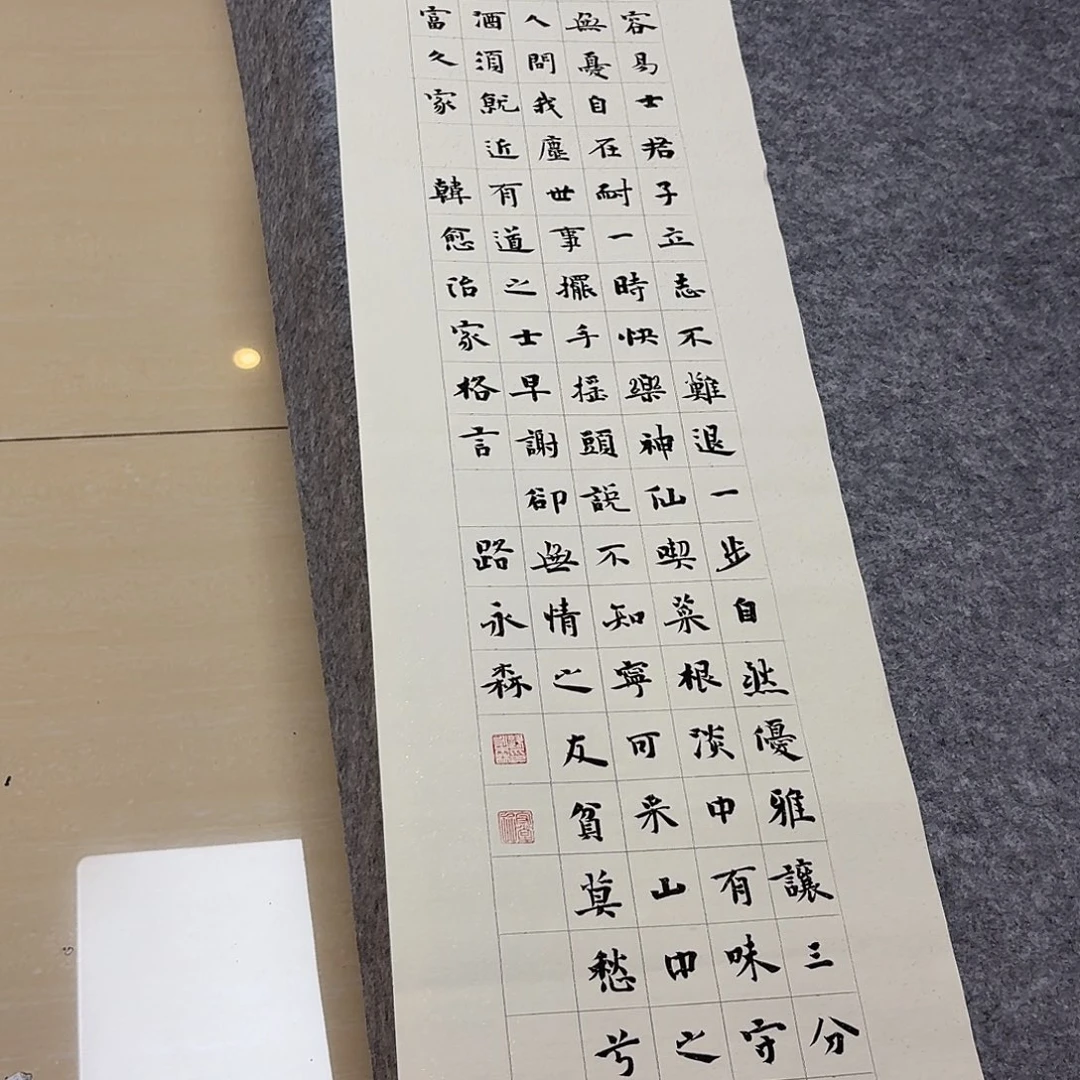 容易士君子立志不難退一步自然優雅讓三分
無憂自在耐一時快樂神仙喫菜根淡中有味守
人問我塵世事擺手搖頭說不知寧可采山中之
酒須就近有道之士早謝卻無情之友貧莫愁兮
富久家 韓愈治家格言 路永森